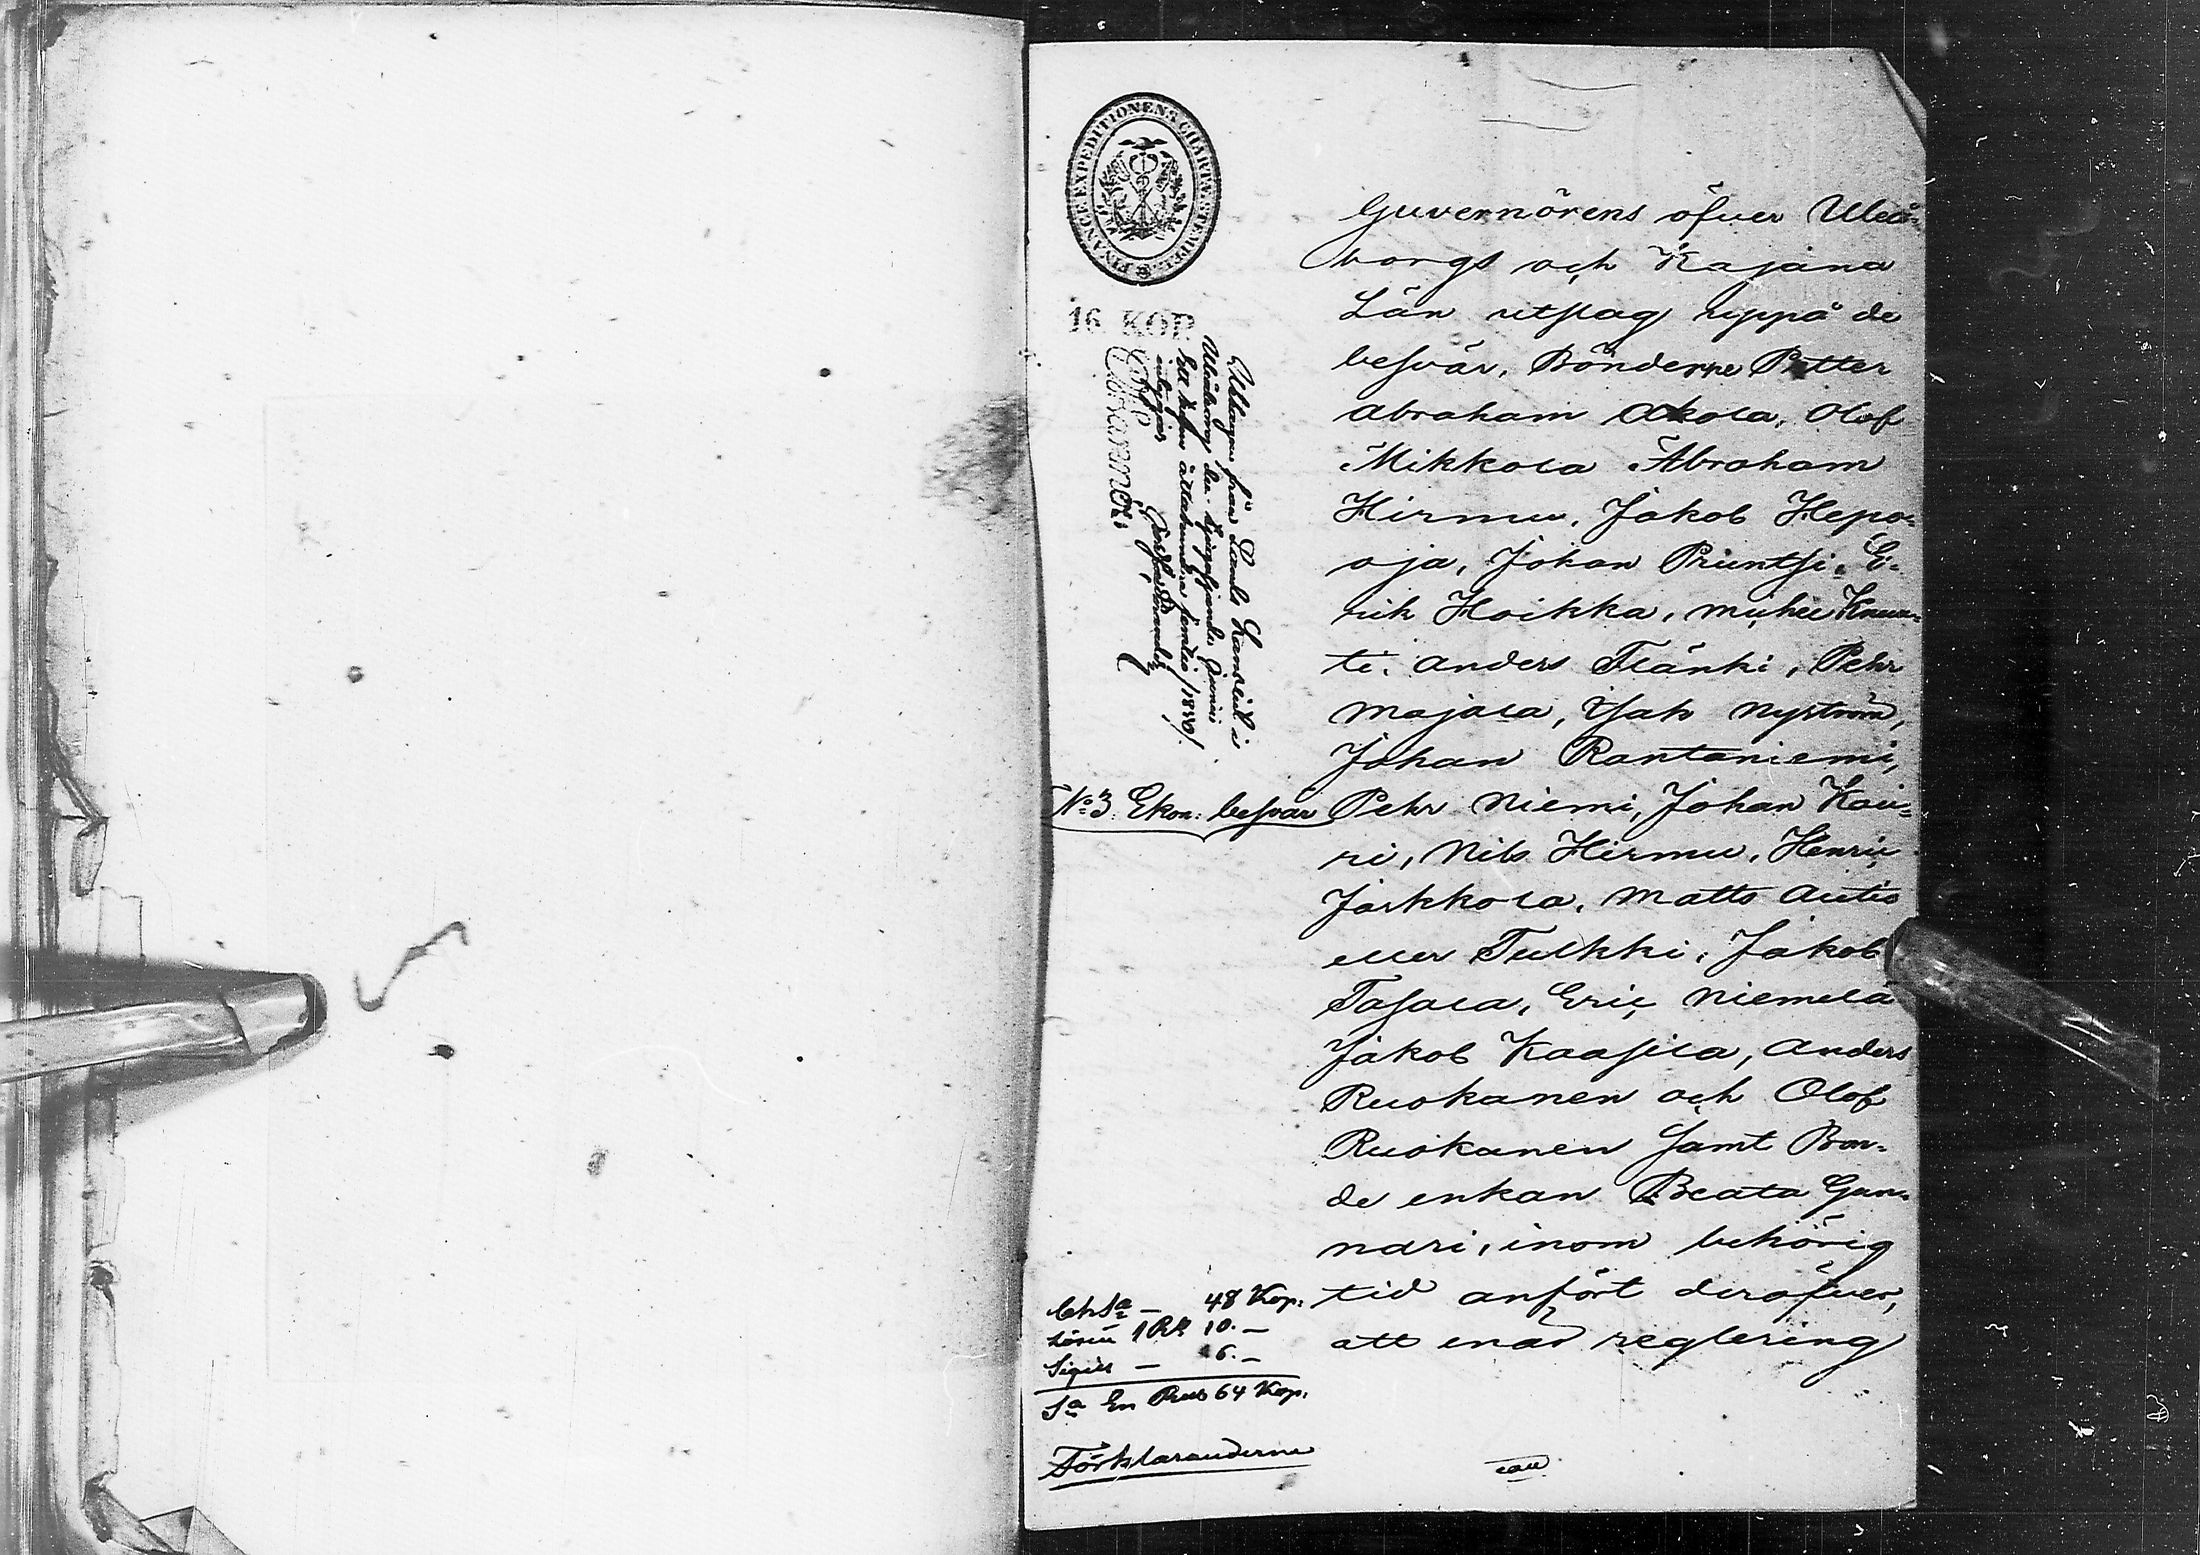 FINANCE EXPEDITIONENS CHARTÆ STEMPEL
16 KOP.
Uttagen från Lands Kansliet i
Uleåborg den tjugufjerde Junii
ett tusen åttahundra femtio /1850/.
intygar
N:o 3. Ekon: besvär
Guvernörens öfver Uleå-
borgs och Kajana
Län utslag uppå de
besvär, Bönderne Petter
Abraham Akola, Olof
Mikkola Abraham
Hirmu, Jakob Hepo-
oja, Johan Pruntsi, E-
rik Hoikka, Michel Knuu-
ti, Anders Flänki, Pehr
Majala, Isak Nyström,
Johan Rantaniemi,
Pehr Niemi, Johan Kau-
ri, Nils Hirmu, Henric
Jarkkola, Matts Autio
eller Tulkki, Jakob
Tasala, Eric Niemelä
Jakob Kaasila, Anders
Ruokanen och Olof
Ruokanen samt Bon-
de enkan Beata Gun-
nari, inom behörig
tid anfört deröfver,
att enär reglering
Ch Sa — 48 Kop:
Lösen 1 Rub 10. —
Sigill — 6. —
Sa En Rub 64 Kop.
Förklaranderne